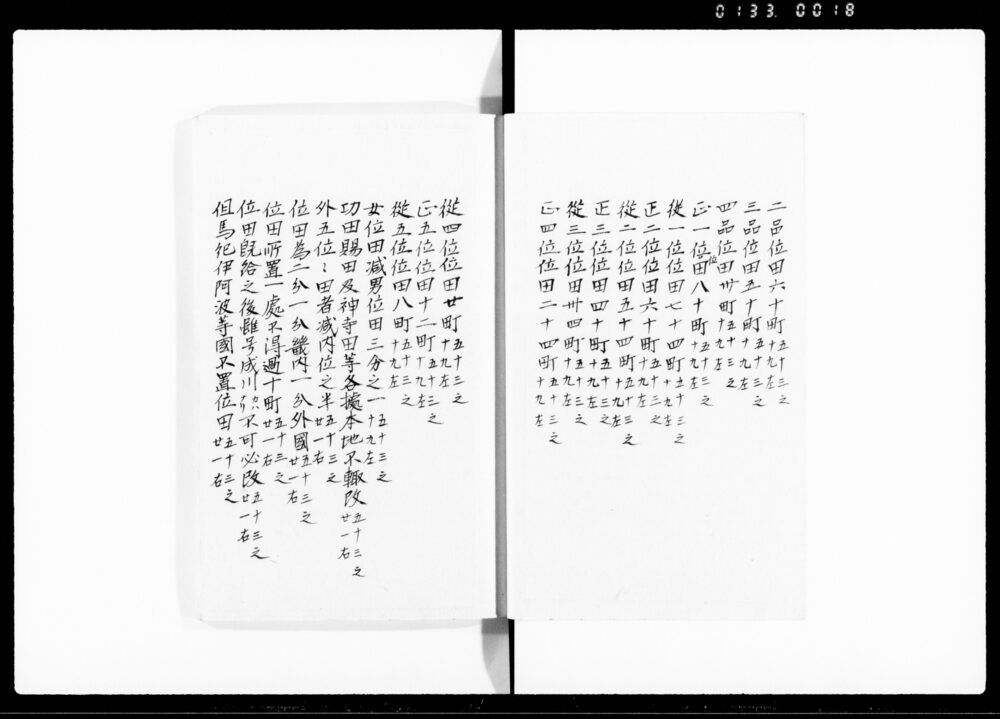 0133.0018
二品位田六十町五十三之十九左
三品位田五十町五十三之十九左
四品位田卌町五十三之十九左
正一位位田八十町五十三之十九左
従一位位田七十四町五十三之十九左
正二位位田六十町五十三之十九左
従二位位田五十四町五十三之十九左
正三位位田四十町五十三之十九左
従三位位田卅四町五十三之十九左
正四位位田二十四町五十三之十九左
従四位位田廿町五十三之十九左
正五位位田十二町五十三之十九左
従五位位田八町五十三之十九左
女位田減男位田三分之一五十三之十九左
功田賜田及神寺田等各據本地不輙改五十三之廿一右
外五位〻田者减内位之半五十三之廿一右
位田為二分一分畿内一分外國五十三之廿一右
位田所置一處不得過十町五十三之廿一右
位田既給之後雖号成川不可必改五十三之廿一右
但馬紀伊阿波等國不置位田五十三之廿一右